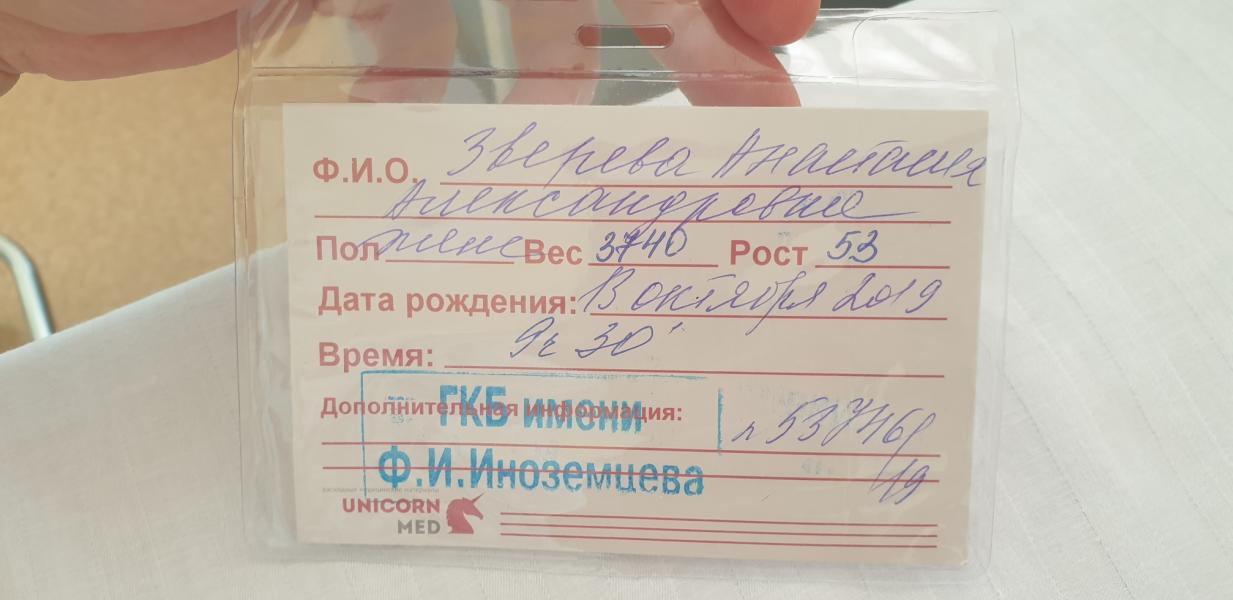 Ф.И.О. Зверева Анастасия
Александровна
Пол женс Вес 3740 Рост 53
Дата рождения: 13 октября 2019
Время: 9ч 30'
Дополнительная информация:
ГКБ имени
Ф.И.Иноземцева
19
расходные медицинские материалы
UNICORN
MED